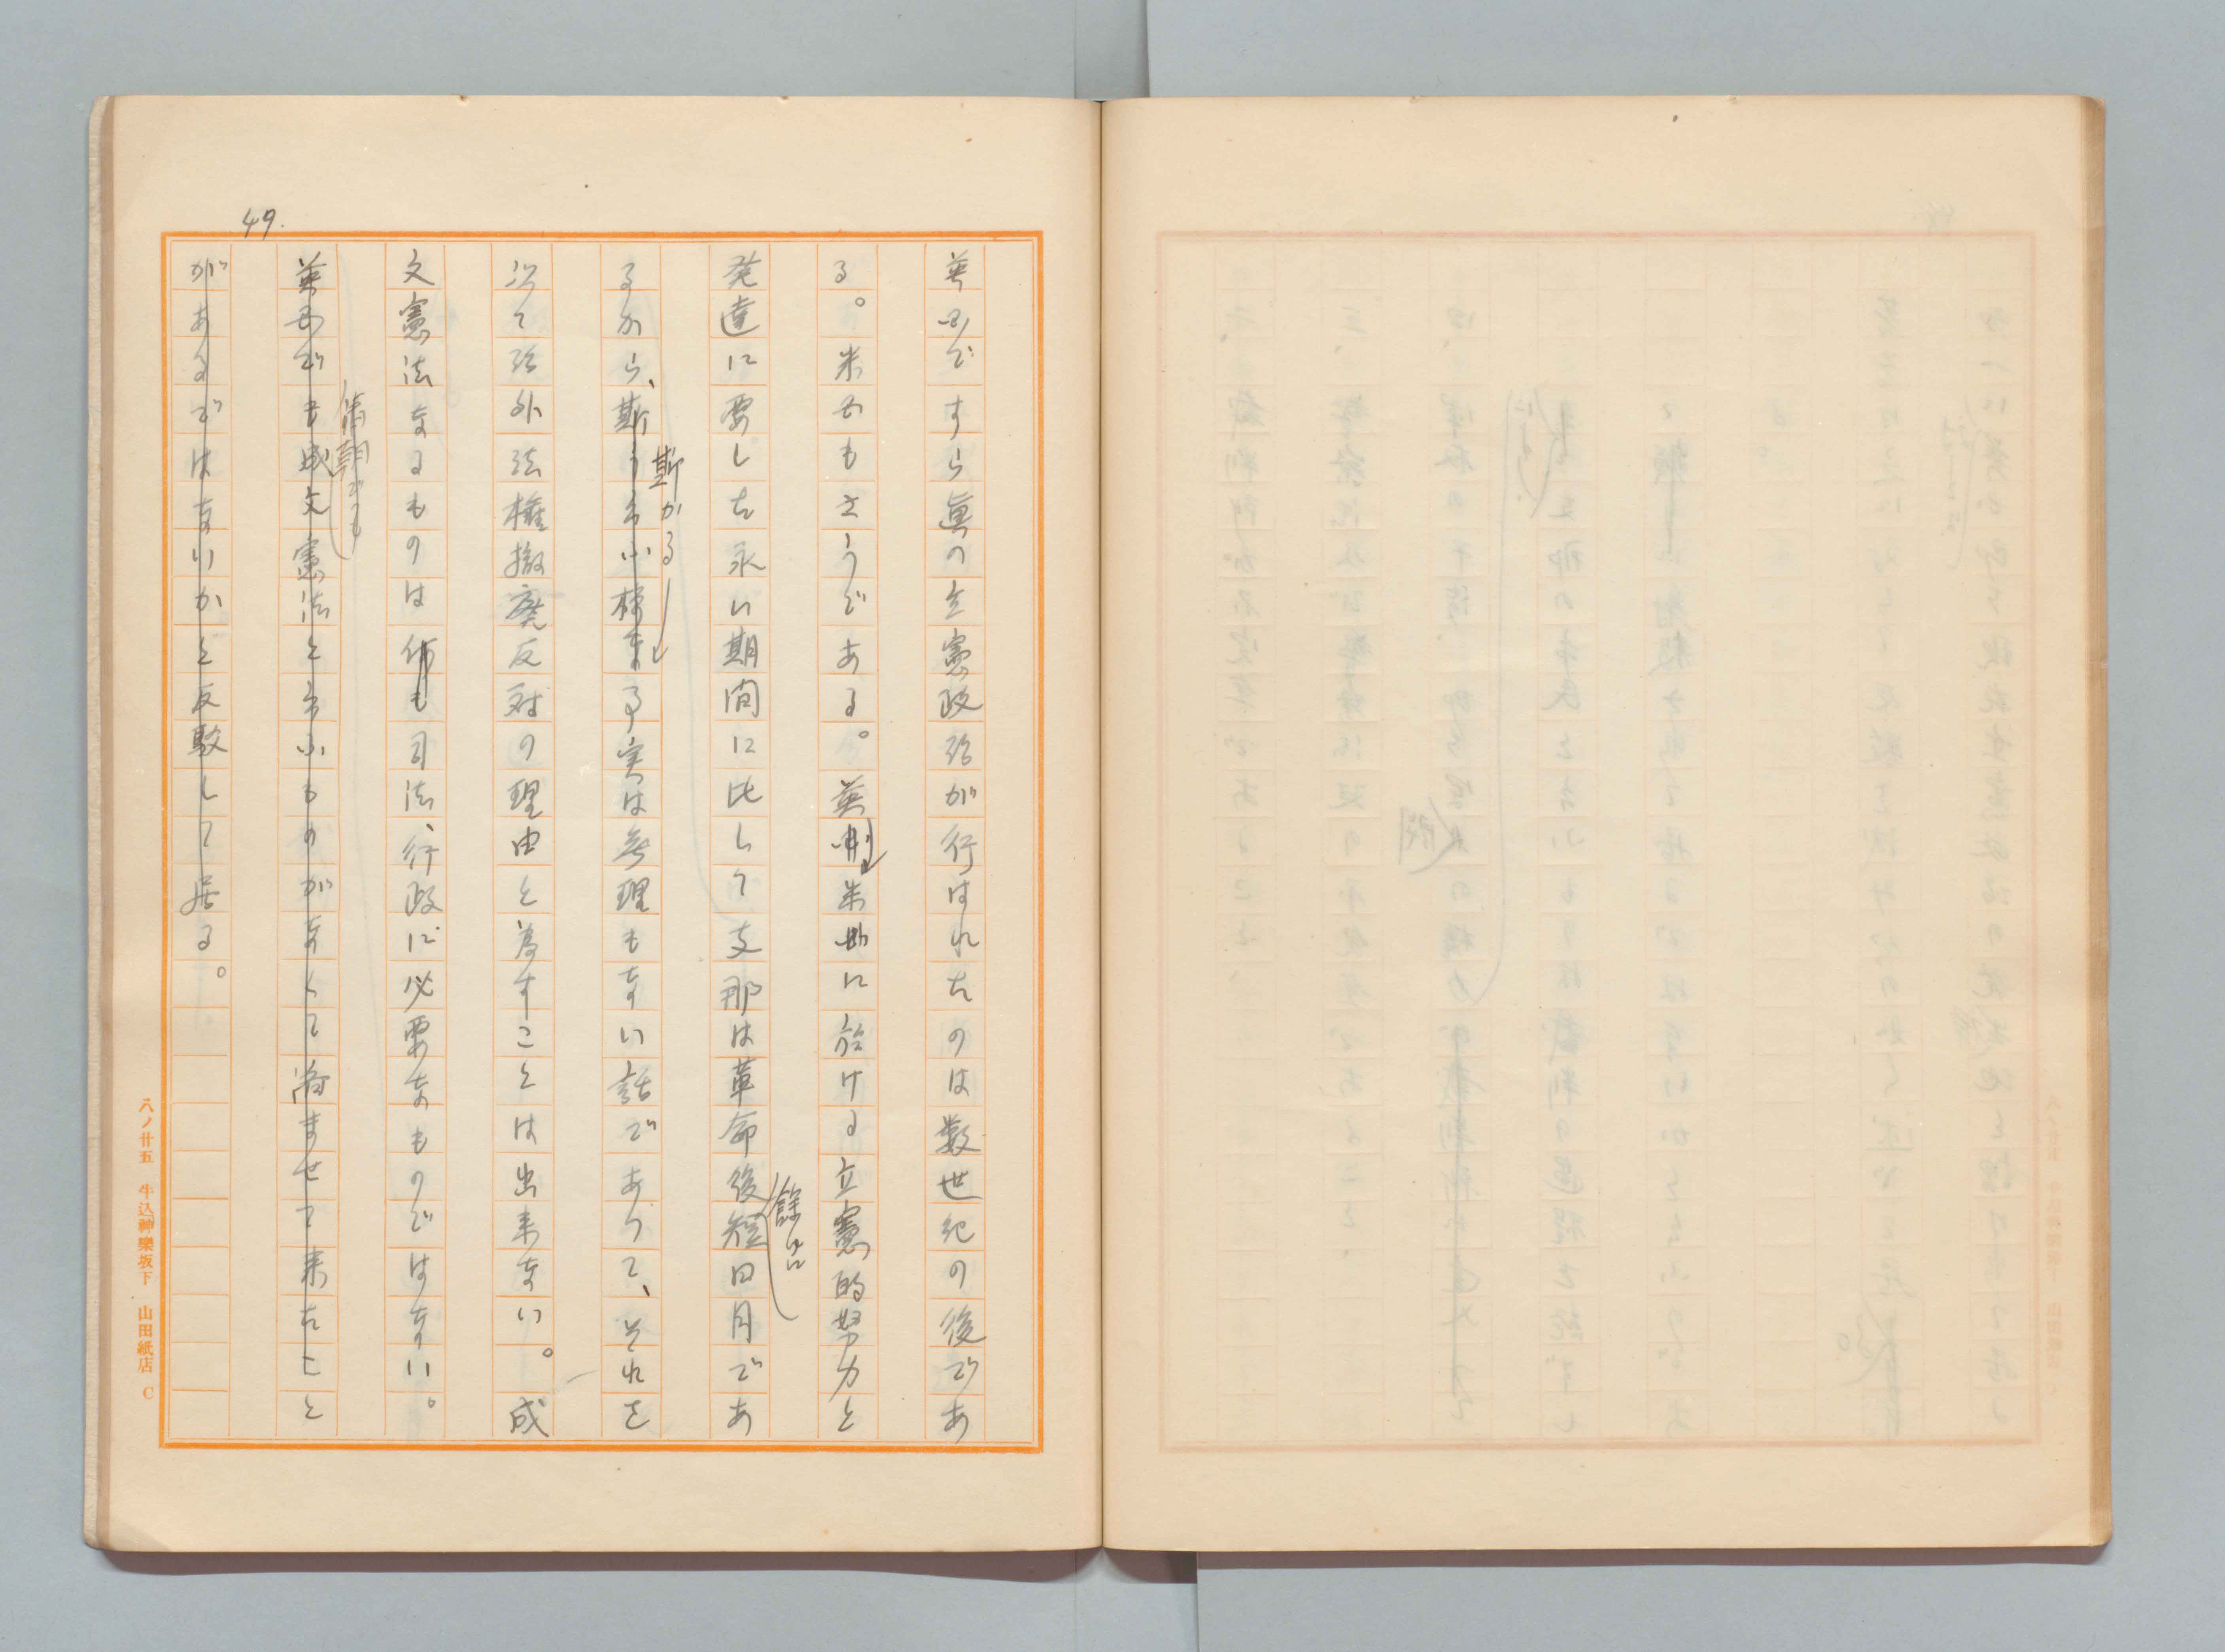 49.
英国ですら眞の立憲政治が行はれたのは数世紀の後であ
る。米国もさうである。英国米国に於ける立憲的努力と
餘りに
発達に要した永い期間に比して支那は革命後短日月であ
斯かる
るから、斯う云ふ様な事実は無理もない話であつて、それを
以て治外法権撤廃反対の理由と為すことは出来ない。成
文憲法なるものは何も司法、行政に必要なものではない。
清朝でも
英国でも成文憲法と云ふものがなくて済ませて来たこと
があるではないかと反駁して居る。
八ノ廿五 牛込神樂坂下 山田紙店 C